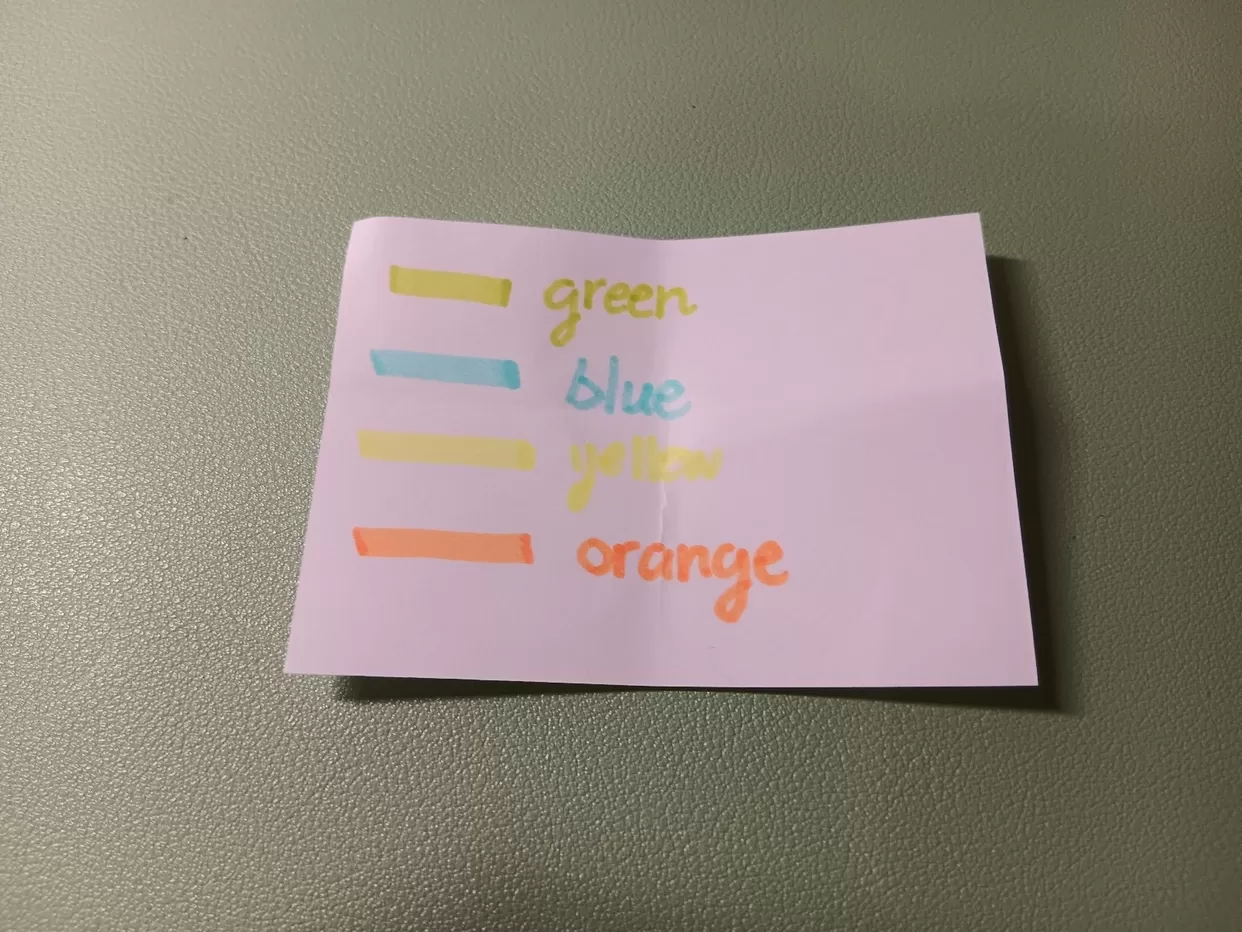 green
blue
yellow
orange